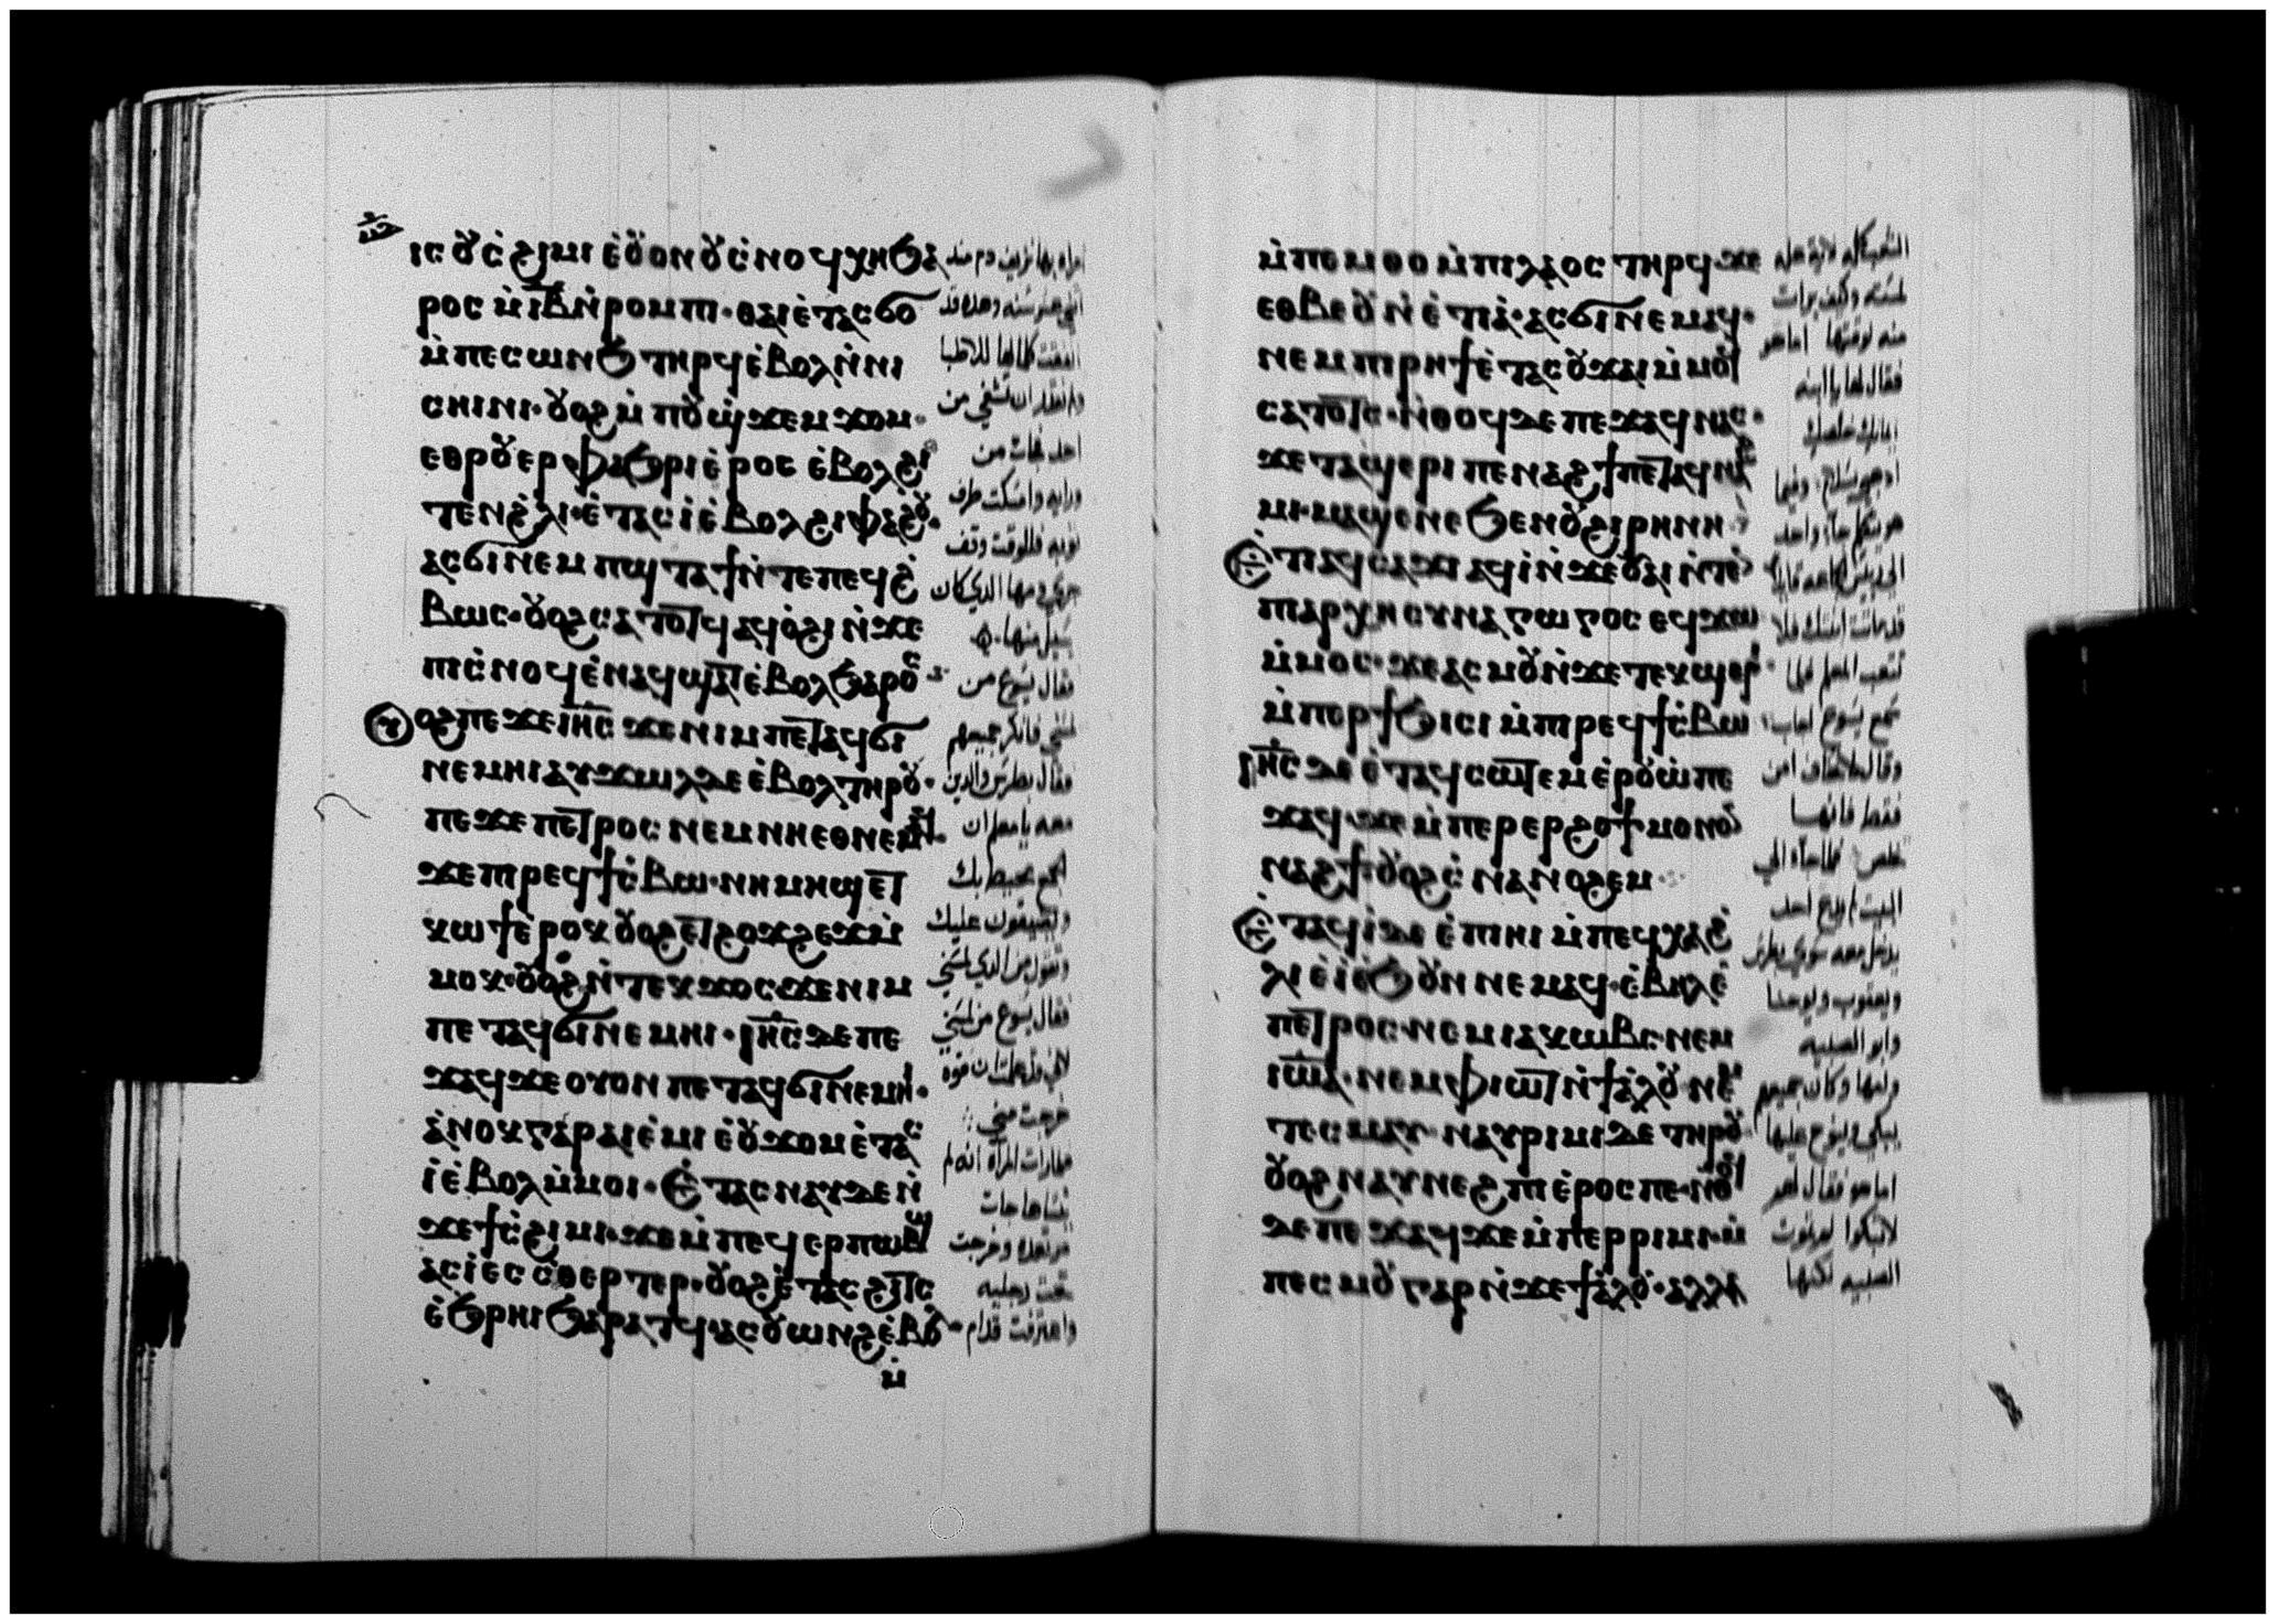 ⲓⲥ ⲟⲩⲥ̀ϩⲓⲙⲓ ⲉ̀ⲟⲩⲟⲛ ⲟⲩⲥ̀ⲛⲟϥ ⲭⲏ ϧⲁ
ⲣⲟⲥ ⲛ̀ⲓ̅ⲃ̅ ⲛ̀ⲣⲟⲙⲡⲓ· ⲑⲁⲓ ⲉ̀ⲧⲁⲥϭⲟ
ⲙ̀ⲡⲉⲥⲱⲛϧ ⲧⲏⲣϥ ⲉ̀ⲃⲟⲗ ⲛ̀ⲛⲓ
ⲥⲏⲓⲛⲓ· ⲟⲩⲟϩ ⲙ̀ⲡⲟⲩϣϫⲉⲙϫⲟⲙ·
ⲉⲑⲣⲟⲩⲉⲣⲫⲁϧⲣⲓ ⲉ̀ⲣⲟⲥ ⲉ̀ⲃⲟⲗϩⲓ
ⲧⲉⲛϩ̀ⲗⲓ· ⲉ̀ⲧⲁⲥⲓ̀ ⲉ̀ⲃⲟⲗϩⲓⲫⲁϩⲟⲩ·
ⲁⲥϭⲓⲛⲉⲙ ⲡϣⲧⲁϯ ⲛ̀ⲧⲉⲡⲉϥϩ̀
ⲃⲱⲥ· ⲟⲩⲟϩ ⲥⲁⲧⲟⲧϥ ⲁϥⲟ̀ϩⲓ ⲛ̀ϫⲉ
ⲡⲓⲥ̀ⲛⲟϥ ⲉ̀ⲛⲁϥϣⲁⲧ ⲉ̀ⲃⲟⲗϧⲁⲣⲟⲥ
ⲟⲩⲟϩ ⲡⲉϫⲉ ⲓⲏ̅ⲥ̅ ϫⲉ ⲛⲓⲙ ⲡⲉⲧⲁϥϭⲓ
ⲛⲉⲙⲏⲓ ⲁⲩϫⲱⲗ ⲇⲉ ⲉ̀ⲃⲟⲗ ⲧⲏⲣⲟⲩ·
ⲡⲉϫⲉ ⲡⲉⲧⲣⲟⲥ ⲛⲉⲙ ⲛⲏ ⲉⲑⲛⲉⲙⲁϥ·
ϫⲉ ⲡⲓⲣⲉϥϯⲥ̀ⲃⲱ· ⲛⲓⲙⲏϣ ⲉⲧ
ⲕⲱϯ ⲉ̀ⲣⲟⲕ ⲟⲩⲟϩ ⲉⲧϩⲟϫϩⲉϫ ⲙ̀
ⲙⲟⲕ· ⲟⲩⲟϩ ⲛ̀ⲧⲉⲕϫⲟⲥ ϫⲉ ⲛⲓⲙ
ⲡⲉⲧⲁϥϭⲓⲛⲉⲙⲏⲓ· ⲓⲏ̅ⲥ̅ ⲇⲉ ⲡⲉ
ϫⲁϥ ϫⲉ ⲟⲩⲟⲛ ⲡⲉⲧⲁϥϭⲓⲛⲉⲙⲏⲓ·
ⲁ̀ⲛⲟⲕ ⲅⲁⲣ ⲁⲓⲉ̀ⲙⲓ ⲉ̀ⲟⲩϫⲟⲙ ⲉ̀ⲧⲁⲥ
ⲓ̀ ⲉ̀ⲃⲟⲗ ⲙ̀ⲙⲟⲓ· ⲉ̀ⲧⲁⲥⲛⲁⲩ ⲇⲉ ⲛ̀
ϫⲉ ϯⲥ̀ϩⲓⲙⲓ· ϫⲉ ⲙ̀ⲡⲉϥⲉⲣⲡⲱⲃϣ
ⲁⲥⲓ̀ ⲉⲥⲥ̀ⲑⲉⲣⲧⲉⲣ· ⲟⲩⲟϩ ⲉ̀ⲧⲁⲥϩⲓⲧⲥ
ⲉ̀ϧⲣⲏⲓ ϧⲁⲣⲁⲧϥ ⲁⲥⲟⲩⲱⲛϩ ⲉ̀ⲃⲟⲗ
ⲙ̀
امراه بها نزيف دم منذ
اثني عشر سنه وهده قد
انفقت كل مالها للاطبا
ولم تقدر ان تشفي من
احد فجات من
ورايه وامسكت طرف
ثوبه فللوقت وقف
جري دمها الدي كان
يسيل منها
فقال يسوع من
لمسني فانكر جميعهم
فقال بطرس والدين
معه يا معلم ان
الجمع محيط بك
ويضيقون عليك
وتقول من الدي لمسني
فقال يسوع من لمسني
لاني قد علمت ان قوة
خرجت مني
فلما رات المراة انه لم
ينساها جات
مرتعدة وخرجت
تحت رجليه
واعترفت قدام
ⲙ̀ⲡⲉⲙⲑⲟ ⲙ̀ⲡⲓⲗⲁⲟⲥ ⲧⲏⲣϥ ϫⲉ
ⲉⲑⲃⲉ ⲟⲩ ⲛ̀ⲉ̀ⲧⲓⲁ̀· ⲁⲥϭⲓⲛⲉⲙⲁϥ·
ⲛⲉⲙ ⲡⲓⲣⲏϯ ⲉ̀ⲧⲁⲥⲟⲩϫⲁⲓ ⲙ̀ⲙⲟⲥ
ⲥⲁⲧⲟⲧⲥ· ⲛ̀ⲑⲟϥ ⲇⲉ ⲡⲉϫⲁϥ ⲛⲁⲥ·
ϫⲉ ⲧⲁϣⲉⲣⲓ ⲡⲉⲛⲁϩϯ ⲡⲉⲧⲁϥⲛⲁϩ
ⲙⲓ· ⲙⲁϣⲉ ⲛⲉ ϧⲉⲛ ⲟⲩϩⲓⲣⲏⲛⲏ
ⲉ̀ⲧⲓ ⲁϥⲥⲁϫⲓ ⲁϥⲓ̀ ⲛ̀ϫⲉ ⲟⲩⲁⲓ ⲛ̀ⲧⲉ
ⲡⲓⲁⲣⲭⲏⲥⲩⲛⲁⲅⲱⲅⲟⲥ ⲉϥϫⲱ
ⲙ̀ⲙⲟⲥ· ϫⲉ ⲁⲥⲙⲟⲩ ⲛ̀ϫⲉ ⲧⲉⲕϣⲉⲣⲓ
ⲙ̀ⲡⲟⲣϯϧⲓⲥⲓ ⲙ̀ⲡⲓⲣⲉϥϯⲥ̀ⲃⲱ
ⲓⲏ̅ⲥ̅ ⲇⲉ ⲉ̀ⲧⲁϥⲥⲱⲧⲉⲙ ⲉ̀ⲣⲟⲩⲱ̀ ⲡⲉ
ϫⲁϥ· ϫⲉ ⲙ̀ⲡⲉⲣⲉⲣϩⲟϯ ⲙⲟⲛⲟⲛ
ⲛⲁϩϯ· ⲟⲩⲟϩ ⲥ̀ⲛⲁⲛⲟϩⲉⲙ
ⲉ̀ⲧⲁϥⲓ̀ ⲇⲉ ⲉ̀ⲡⲓⲏⲓ ⲙ̀ⲡⲉϥⲭⲁϩ̀
ⲗⲓ ⲉ̀ⲓ̀ ⲉ̀ϧⲟⲩⲛ ⲛⲉⲙⲁϥ· ⲉ̀ⲃⲏⲗ ⲉ̀
ⲡⲉⲧⲣⲟⲥ· ⲛⲉⲙ ⲓⲁⲕⲱⲃⲟⲥ ⲛⲉⲙ
ⲓⲱ̅ⲁ̅· ⲛⲉⲙ ⲫⲓⲱⲧ ⲛ̀ϯⲁ̀ⲗⲟⲩ ⲛⲉⲙ
ⲧⲉⲥⲙⲁⲩ· ⲛⲁⲩⲣⲓⲙⲓ ⲇⲉ ⲧⲏⲣⲟⲩ
ⲟⲩⲟϩ ⲛⲁⲩⲛⲉϩⲡⲓ ⲉ̀ⲣⲟⲥ ⲡⲉ· ⲛ̀ⲑⲟϥ
ⲇⲉ ⲡⲉϫⲁϥ ϫⲉ ⲙ̀ⲡⲉⲣⲣⲓⲙⲓ· ⲙ̀
ⲡⲉⲥⲙⲟⲩ ⲅⲁⲣ ⲛ̀ϫⲉ ϯⲁ̀ⲗⲟⲩ· ⲁⲗⲗⲁ
الشعب كله لاية عله
لمسته وكيف برات
منه لوقتها اما هو
فقال لها يا ابنه
ايمانك خلصك
ادهبي بسلام وفيما
هو يتكلم جا واحد
قد ماتت ابنتك فلا
تتعب المعلم فلما
سمع يسوع اجاب
وقال لا تخاف امن
فقط فانها
تخلص فلما جاء الي
البيت لم يدع احد
يدخل معه سوي بطرس
ويعقوب ويوحنا
وابو الصبيه
وامها وكان جميعهم
يبكي وينوح عليها
اما هو فقال لهم
لا تبكوا لم تموت
الصبيه لكنها